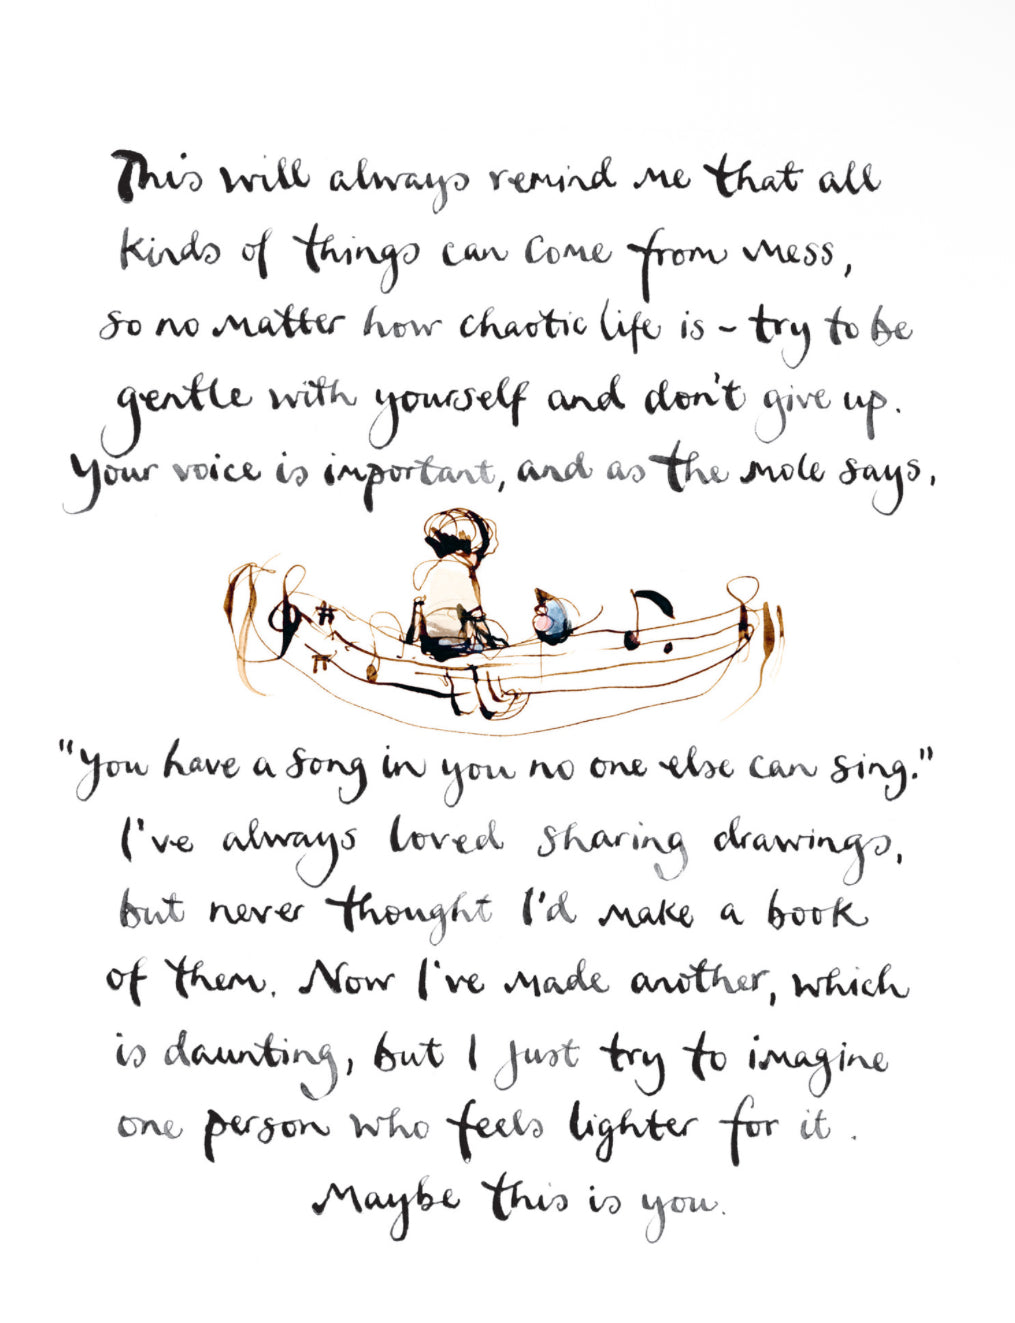 This will always remind me that all
kinds of things can come from mess,
so no matter how chaotic life is ~ try to be
gentle with yourself and don't give up.
Your voice is important, and as the mole says,
"You have a song in you no one else can sing."
I've always loved sharing drawings,
but never thought I'd make a book
of them. Now I've made another, which
is daunting, but I just try to imagine
one person who feels lighter for it.
Maybe this is you.